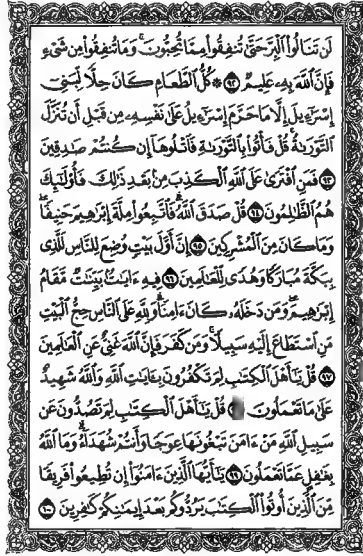 لَن تَنَالُوا۟ ٱلْبِرَّ حَتَّىٰ تُنفِقُوا۟ مِمَّا تُحِبُّونَ ۚ وَمَا تُنفِقُوا۟ مِن شَىْءٍ
فَإِنَّ ٱللَّهَ بِهِۦ عَلِيمٌ ٩٢ ۞ كُلُّ ٱلطَّعَامِ كَانَ حِلًّا لِّبَنِىٓ
إِسْرَٰٓءِيلَ إِلَّا مَا حَرَّمَ إِسْرَٰٓءِيلُ عَلَىٰ نَفْسِهِۦ مِن قَبْلِ أَن تُنَزَّلَ
ٱلتَّوْرَىٰةُ ۗ قُلْ فَأْتُوا۟ بِٱلتَّوْرَىٰةِ فَٱتْلُوهَآ إِن كُنتُمْ صَٰدِقِينَ
٩٣ فَمَنِ ٱفْتَرَىٰ عَلَى ٱللَّهِ ٱلْكَذِبَ مِنۢ بَعْدِ ذَٰلِكَ فَأُو۟لَٰٓئِكَ
هُمُ ٱلظَّٰلِمُونَ ٩٤ قُلْ صَدَقَ ٱللَّهُ ۗ فَٱتَّبِعُوا۟ مِلَّةَ إِبْرَٰهِيمَ حَنِيفًا ۖ
وَمَا كَانَ مِنَ ٱلْمُشْرِكِينَ ٩٥ إِنَّ أَوَّلَ بَيْتٍ وُضِعَ لِلنَّاسِ لَلَّذِى
بِبَكَّةَ مُبَارَكًا وَهُدًى لِّلْعَٰلَمِينَ ٩٦ فِيهِ ءَايَٰتٌۢ بَيِّنَٰتٌ مَّقَامُ
إِبْرَٰهِيمَ ۖ وَمَن دَخَلَهُۥ كَانَ ءَامِنًا ۗ وَلِلَّهِ عَلَى ٱلنَّاسِ حِجُّ ٱلْبَيْتِ
مَنِ ٱسْتَطَاعَ إِلَيْهِ سَبِيلًا ۚ وَمَن كَفَرَ فَإِنَّ ٱللَّهَ غَنِىٌّ عَنِ ٱلْعَٰلَمِينَ
٩٧ قُلْ يَٰٓأَهْلَ ٱلْكِتَٰبِ لِمَ تَكْفُرُونَ بِـَٔايَٰتِ ٱللَّهِ وَٱللَّهُ شَهِيدٌ
عَلَىٰ مَا تَعْمَلُونَ قُلْ يَٰٓأَهْلَ ٱلْكِتَٰبِ لِمَ تَصُدُّونَ عَن
سَبِيلِ ٱللَّهِ مَنْ ءَامَنَ تَبْغُونَهَا عِوَجًا وَأَنتُمْ شُهَدَآءُ ۗ وَمَا ٱللَّهُ
بِغَٰفِلٍ عَمَّا تَعْمَلُونَ ٩٩ يَٰٓأَيُّهَا ٱلَّذِينَ ءَامَنُوٓا۟ إِن تُطِيعُوا۟ فَرِيقًا
مِّنَ ٱلَّذِينَ أُوتُوا۟ ٱلْكِتَٰبَ يَرُدُّوكُم بَعْدَ إِيمَٰنِكُمْ كَٰفِرِينَ ١٠٠